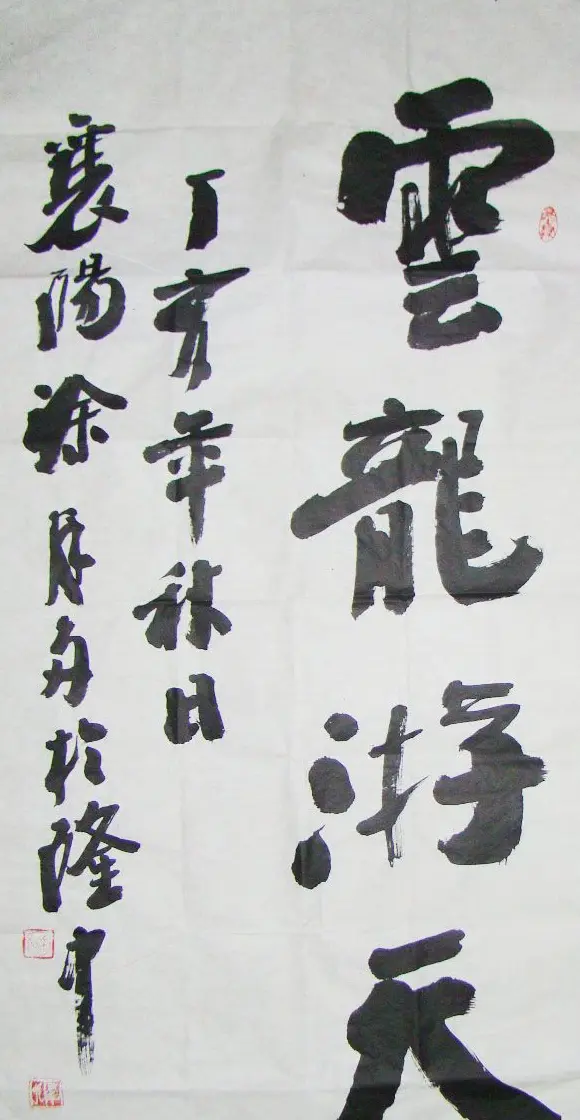 雲龍游天
丁亥年秋日
襄陽涂月舟於隆中